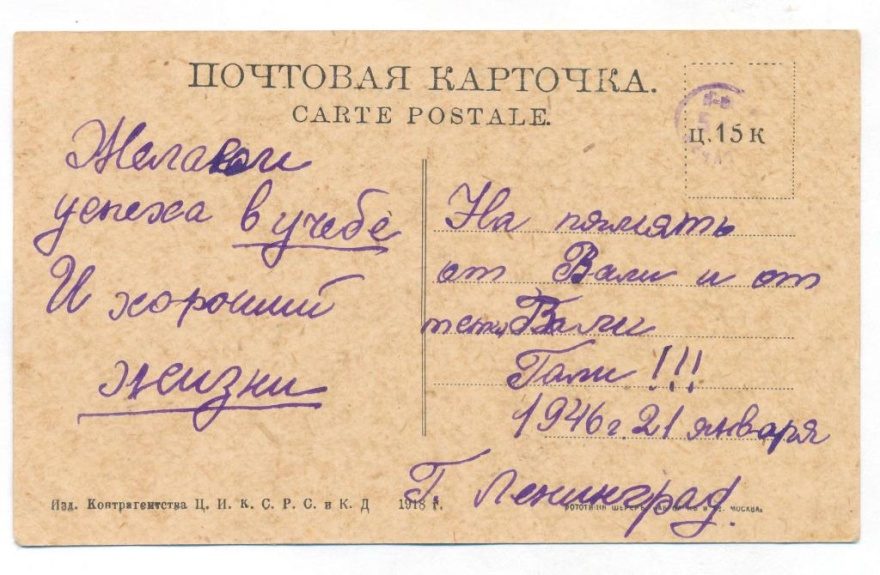 ПОЧТОВАЯ КАРТОЧКА.
CARTE POSTALE.
Ц. 15 К
Желаем
успеха в учебе
И хороший
жизни
На память
от Вали и от
тети Вали
Гали !!!
1946 г. 21 января
Г. Ленинград.
Изд. Контрагентства Ц. И. К. С. Р. С. и К. Д 1918 г.
МОСКВА.